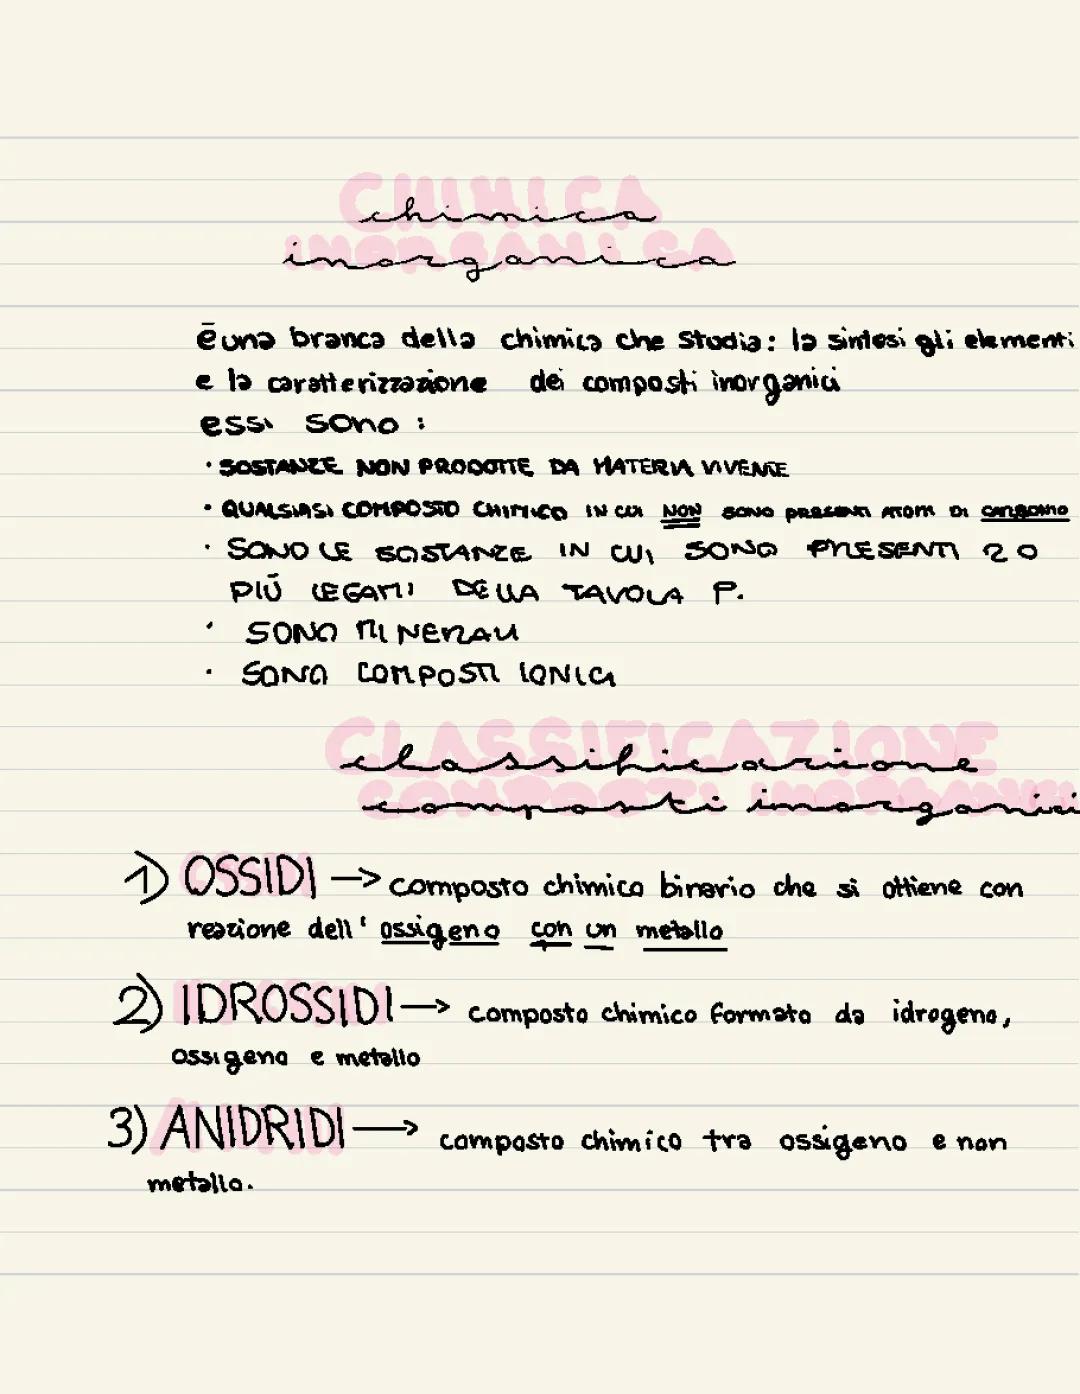 chimica
inorganica
è una branca della chimica che studia: la sintesi gli elementi
e la caratterizzazione dei composti inorganici
essi sono:
· SOSTANZE NON PRODOTTE DA MATERIA VIVENTE
· QUALSIASI COMPOSTO CHIMICO IN CUI NON SONO PRESENTI ATOMI DI CARBONIO
· SONO LE SOSTANZE IN CUI SONO PRESENTI 2 O
PIÙ LEGAMI DELLA TAVOLA P.
· SONO MINERALI
· SONO COMPOSTI IONICI
classificazione
composti inorganici
1) OSSIDI → composto chimico binario che si ottiene con
reazione dell' ossigeno con un metallo
2) IDROSSIDI → composto chimico formato da idrogeno,
ossigeno e metallo
3) ANIDRIDI → composto chimico tra ossigeno e non
metallo.